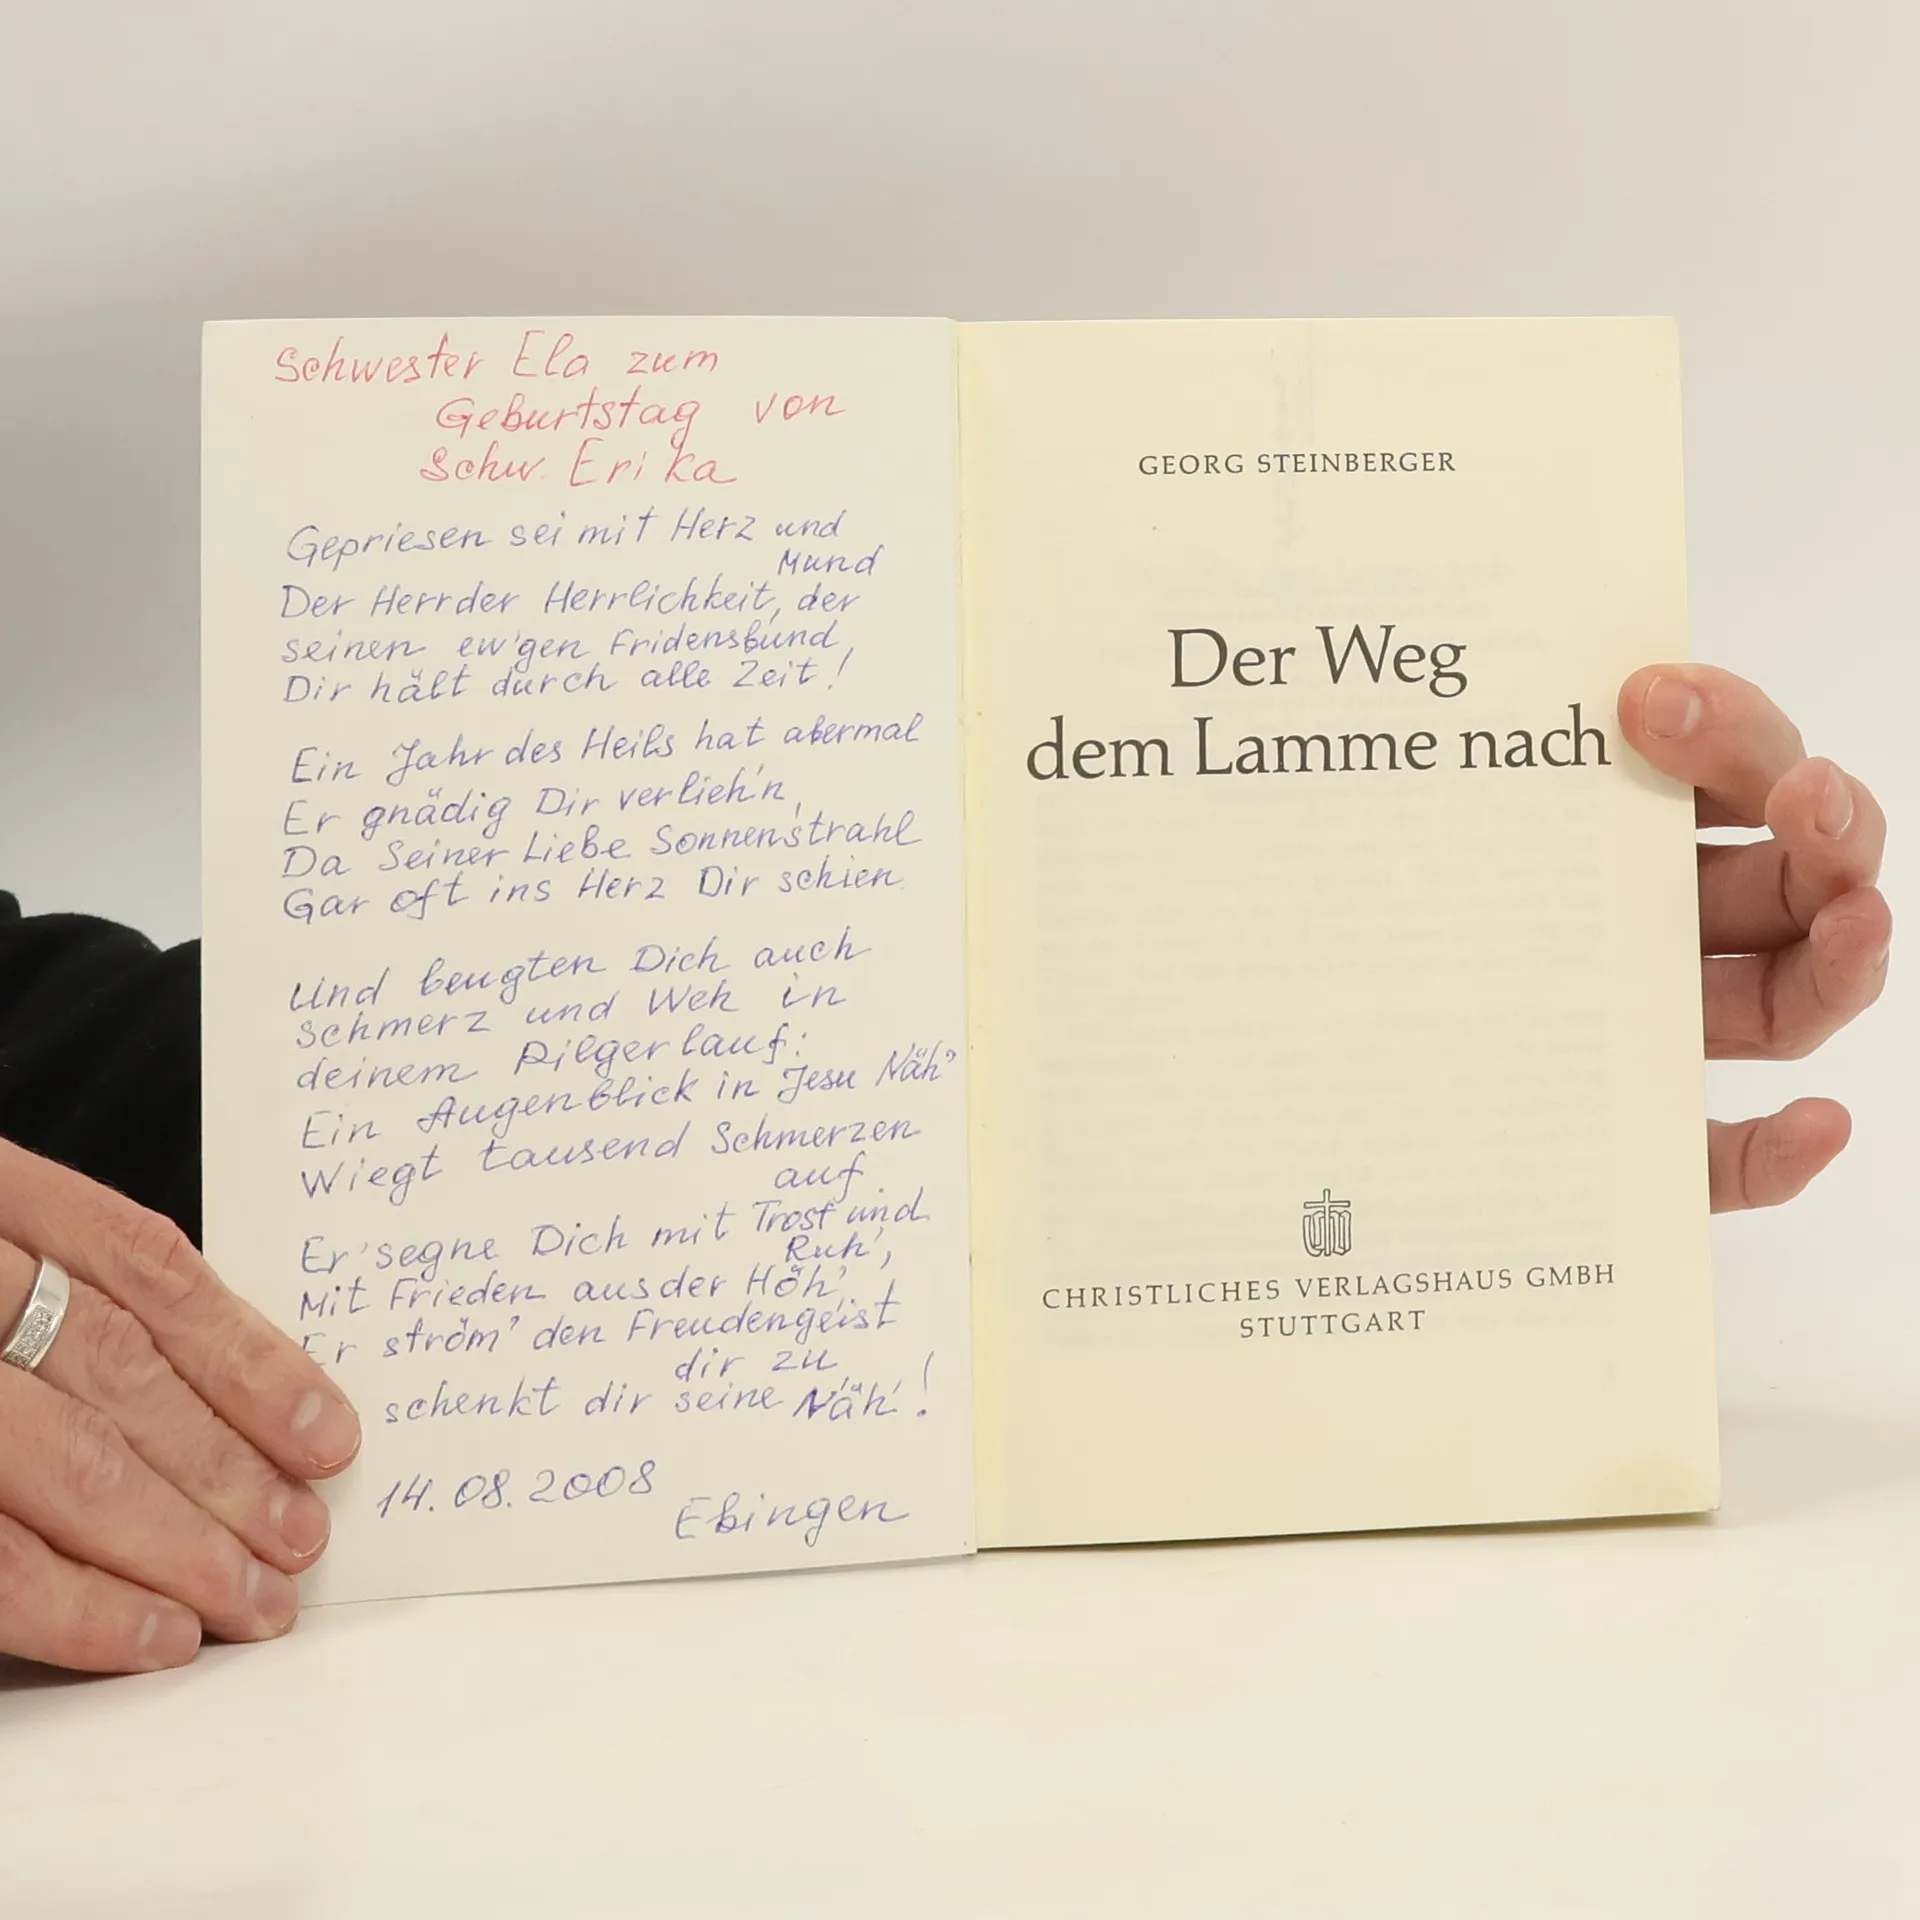 Schwester Ela zum
Geburtstag von
Schw. Erika
Gepriesen sei mit Herz und
Mund
Der Herr der Herrlichkeit, der
seinen ew'gen Fridensbund,
Dir hält durch alle Zeit!
Ein Jahr des Heils hat abermal
Er gnädig Dir verlieh'n,
Da Seiner Liebe Sonnenstrahl
Gar oft ins Herz Dir schien.
Und beugten Dich auch
Schmerz und Weh in
deinem Pilgerlauf:
Ein Augenblick in Jesu Näh'
Wiegt tausend Schmerzen
auf.
Er'segne Dich mit Trost und
Ruh',
Mit Frieden aus der Höh',
Er ström' den Freudengeist
dir zu,
schenkt dir seine Näh'!
14.08.2008
Ebingen
GEORG STEINBERGER
Der Weg
dem Lamme nach
CHRISTLICHES VERLAGSHAUS GMBH
STUTTGART